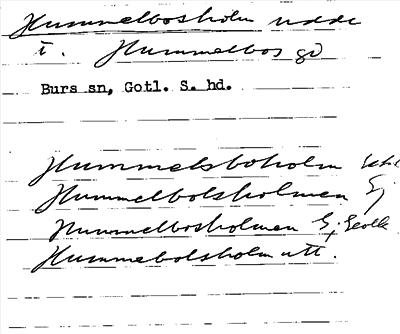 Hummelbosholm udde
t. Hummelbos gd
Burs sn, Gotl. S. hd.
Hummelsboholm
Hummelbolsholmen Ej
Hummelbosholmen Ej
Hummebolsholm utt.